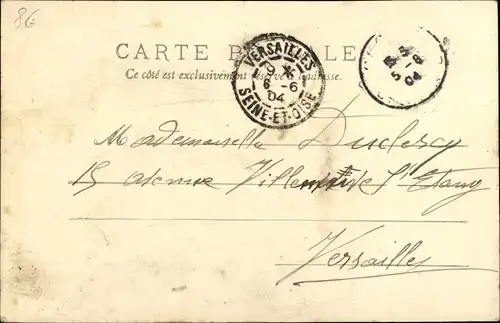 8€
CARTE POSTALE
Ce côté est exclusivement réservé à l'adresse.
VERSAILLES
6 -6
04
SEINE-ET-OISE
04
Mademoiselle Duclercy
15 avenue Villeneuve l'Etang
Versailles